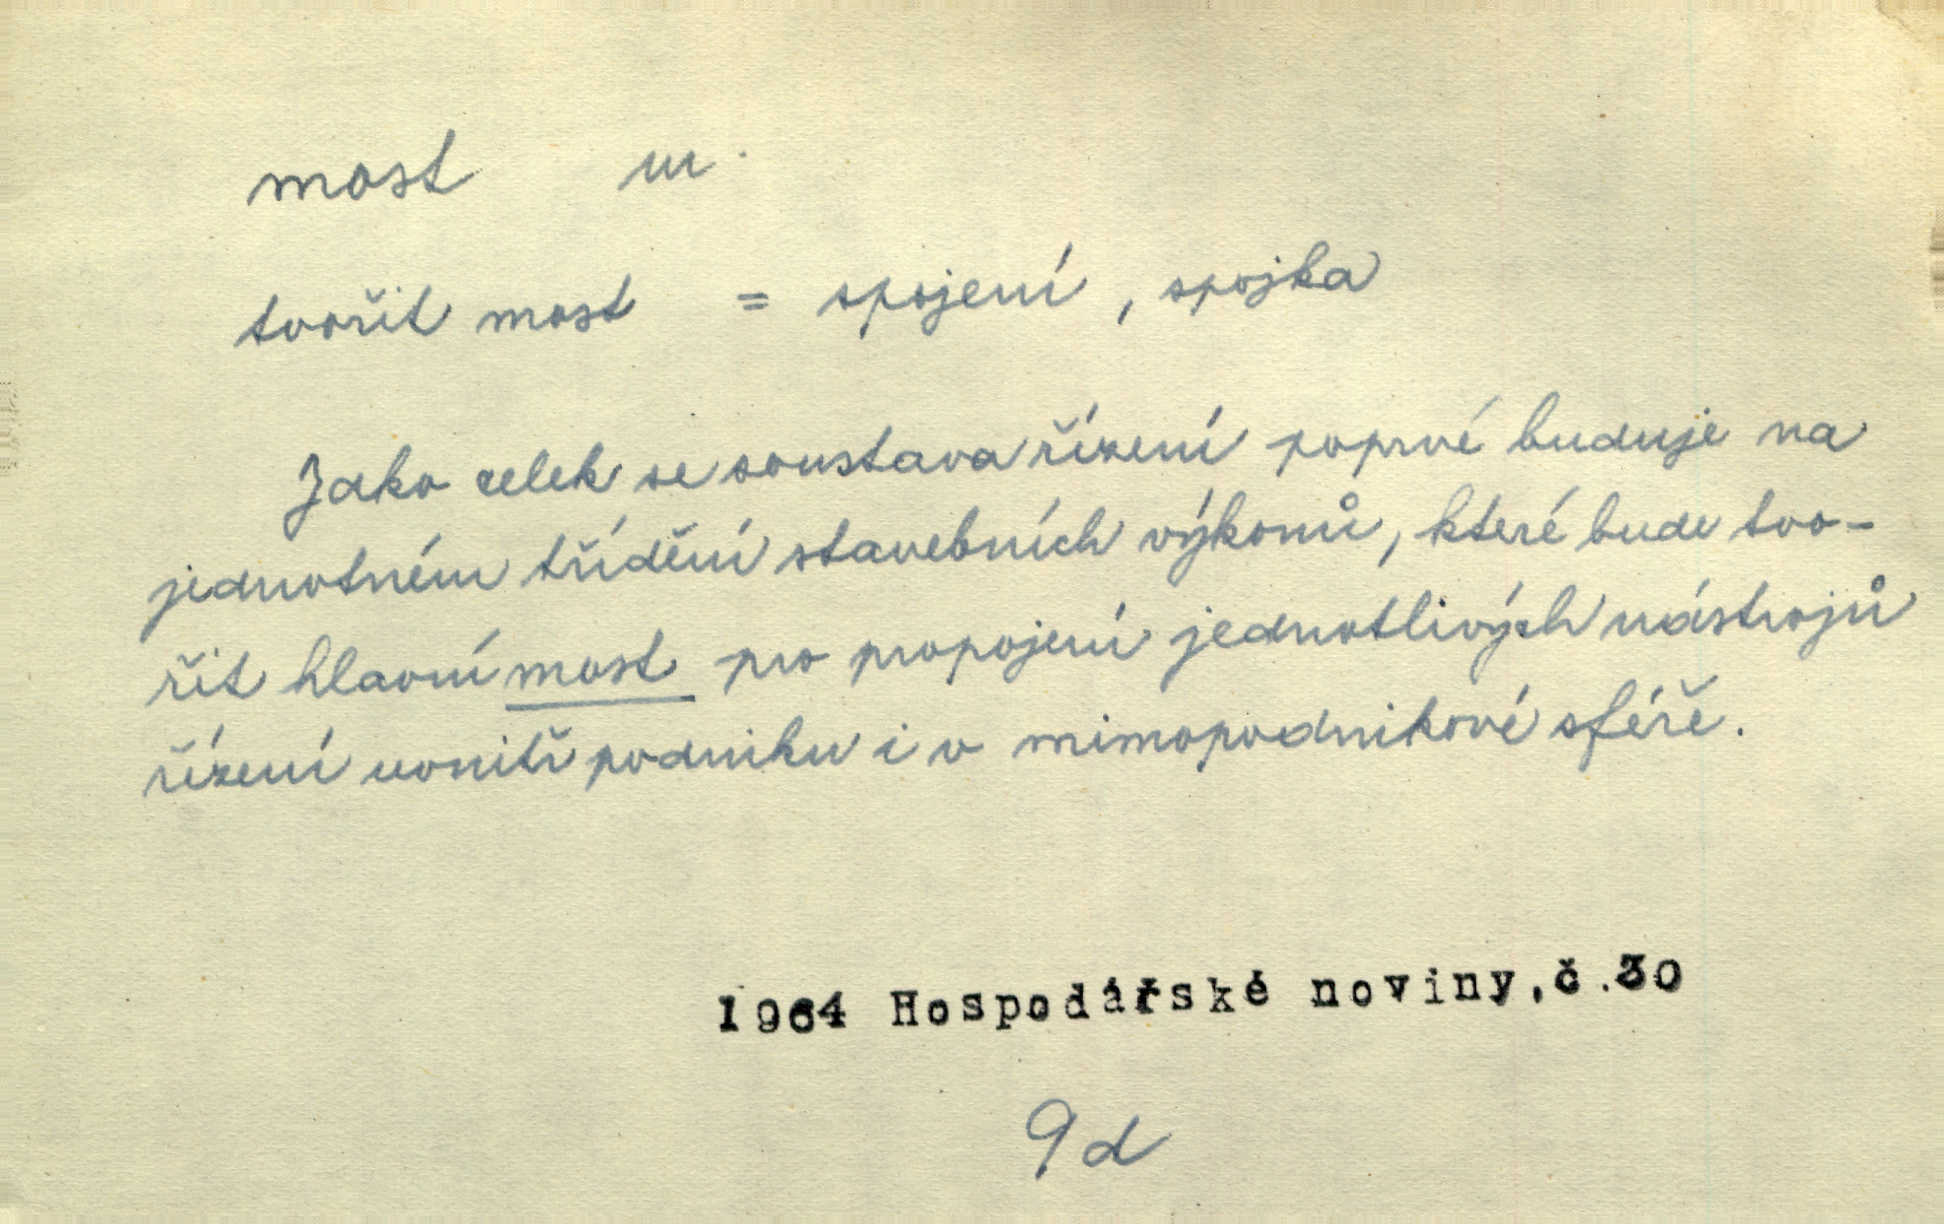 most m.
tvořit most = spojení, spojka
Jako celek se soustava řízení poprvé buduje na
jednotném třídění stavebních výkonů, které bude tvo-
řit hlavní most pro propojení jednotlivých nástrojů
řízení uvnitř podniku i v mimopodnikové sféře.
1964 Hospodářské noviny,č.30
9d